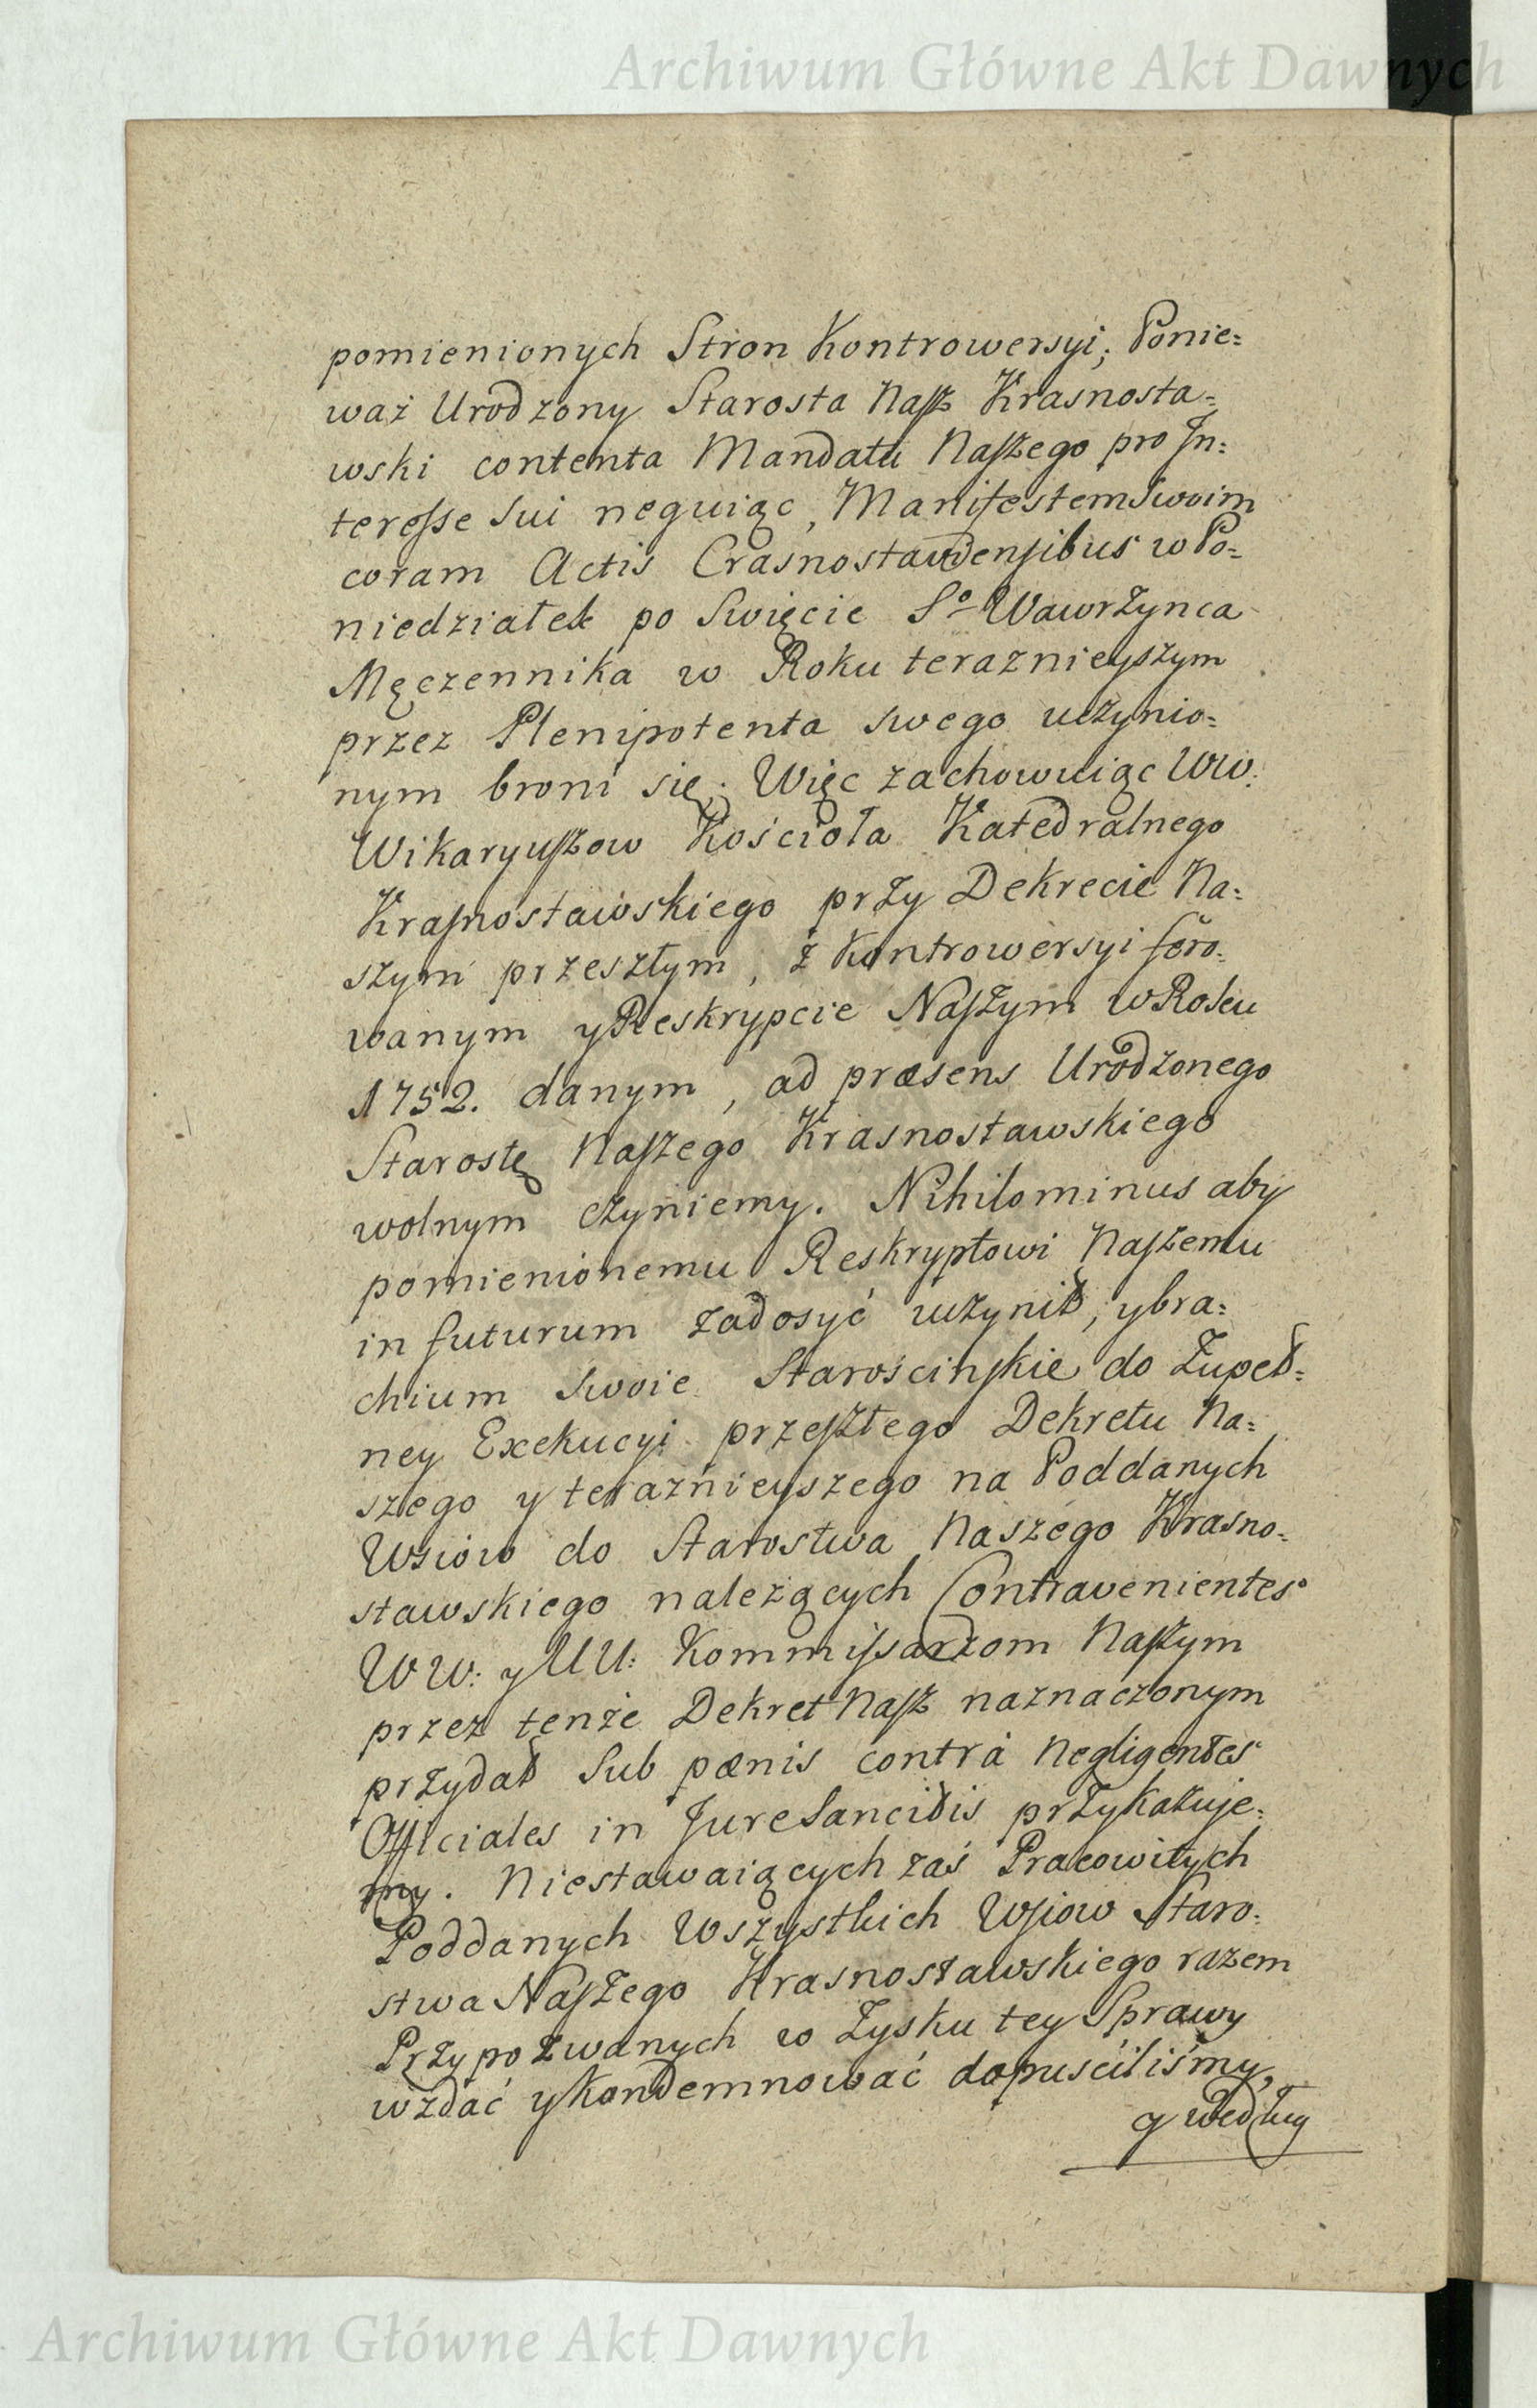 Archiwum Główne Akt Dawnych
pomienionych Stron Kontrowersyi; Ponie=
waż Urodzony Starosta Nasz Krasnosta=
wski contenta Mandatu Naszego pro In=
teresse sui neguiąc, Manifestem swoim
coram Actis Crasnostaviensibus w Po=
niedziałek po Swięcie So Wawrzynca
Męczennika w Roku teraznieyszym
przez Plenipotenta swego uczynio=
nym broni się; Więc zachowuiąc WW.
Wikaryuszow Kościoła Katedralnego
Krasnostawskiego przy Dekrecie Na=
szym przeszłym, z Kontrowersyi fero=
wanym y Reskrypcie Naszym w Roku
1752. danym, ad præsens Urodzonego
Starostę Naszego Krasnostawskiego
wolnym czyniemy. Nihilominus aby
pomienionemu Reskryptowi Naszemu
in futurum zadosyć uczynił, y bra=
chium swoie Starościnskie do Zupeł=
ney Exekucyi przeszłego Dekretu Na=
szego y teraźnieyszego na Poddanych
Wsiow do Starostwa Naszego Krasno=
stawskiego należących Contravenientes
WW: y UU: Kommissarzom Naszym
przez tenże Dekret Nasz naznaczonym
przydał sub pœnis contra Negligentes
Officiales in Jure Sancitis przykazuje=
my. Niestawaiących zaś Pracowitych
Poddanych Wszystkich Wsiow Staro=
stwa Naszego Krasnostawskiego razem
Przypozwanych w Zysku tey Sprawy
wzdać y Kondemnować dopuściliśmy,
y według
Archiwum Główne Akt Dawnych